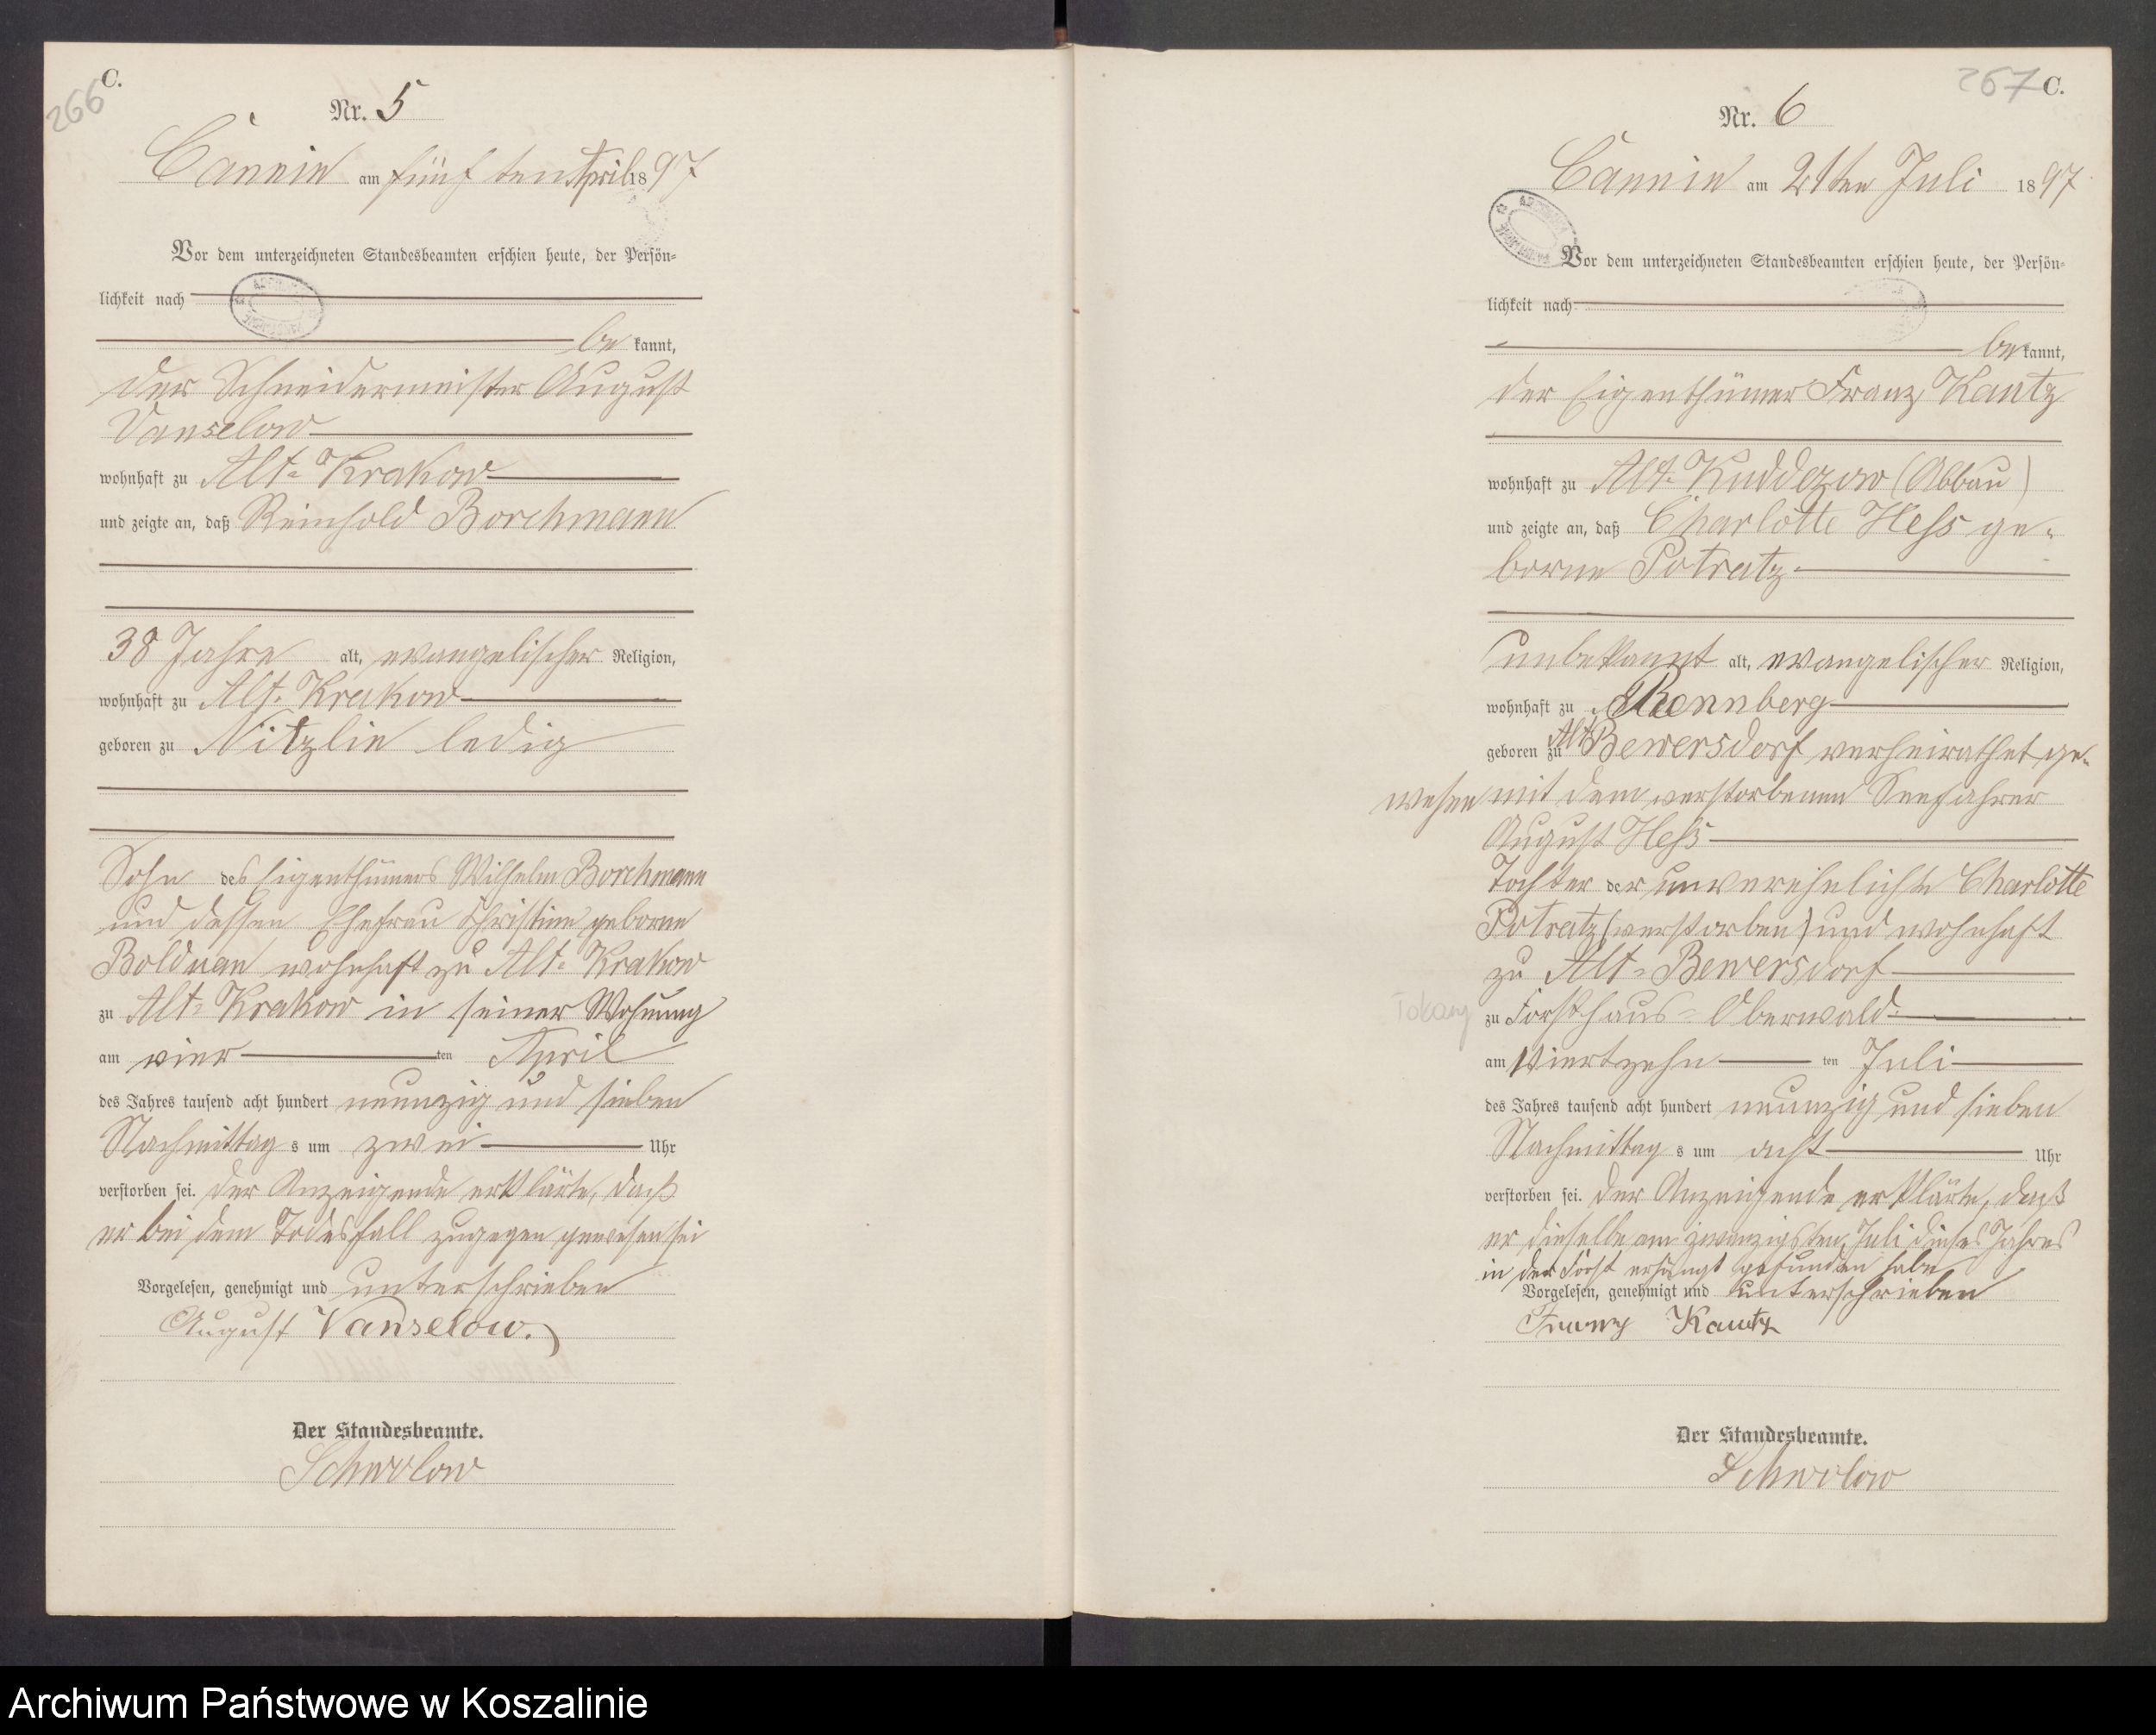 266 C.
Nr. 5
Cannin am fünften April 1897
Vor dem unterzeichneten Standesbeamten erschien heute, der Persön-
lichkeit nach
be kannt,
der Schneidermeister August
Vanselow
wohnhaft zu Alt-Krakow
und zeigte an, daß Reinhold Borchmann
38 Jahre alt, evangelischer Religion,
wohnhaft zu Alt-Krakow
geboren zu Nitzlin ledig
Sohn des Eigenthümers Wilhelm Borchmann
und dessen Ehefrau Christine geborne
Bolduan wohnhaft zu Alt-Krakow
zu Alt-Krakow in seiner Wohnung
am vier ten April
des Jahres tausend acht hundert neunzig und sieben
Nachmittag s um zwei Uhr
verstorben sei. Der Anzeigende erklärte, daß
er bei dem Todesfall zugegen gewesen sei
Vorgelesen, genehmigt und unterschrieben
August Vanselow.
Der Standesbeamte.
Schwolow
267 C.
Nr. 6
Cannin am 21ten Juli 1897
Vor dem unterzeichneten Standesbeamten erschien heute, der Persön-
lichkeit nach
be kannt,
der Eigenthümer Franz Kautz
wohnhaft zu Alt-Kuddezow (Abbau)
und zeigte an, daß Charlotte Heß ge-
borne Potratz
unbekannt alt, evangelischer Religion,
wohnhaft zu Rennberg
geboren zu Alt Bewersdorf verheirathet ge-
wesen mit dem verstorbenen Seefahrer
August Heß
Tochter der unverehelichte Charlotte
Potratz (verstorben) und wohnhaft
zu Alt-Bewersdorf
zu Forsthaus-Oberwald
am Viertzehn ten Juli
des Jahres tausend acht hundert neunzig und sieben
Nachmittag s um acht Uhr
verstorben sei. Der Anzeigende erklärte, daß
er dieselbe am zwanzigsten Juli dieses Jahres
in der Forst erhängt gefunden habe
Vorgelesen, genehmigt und unterschrieben
Franz Kautz
Der Standesbeamte.
Schwolow
Archiwum Państwowe w Koszalinie